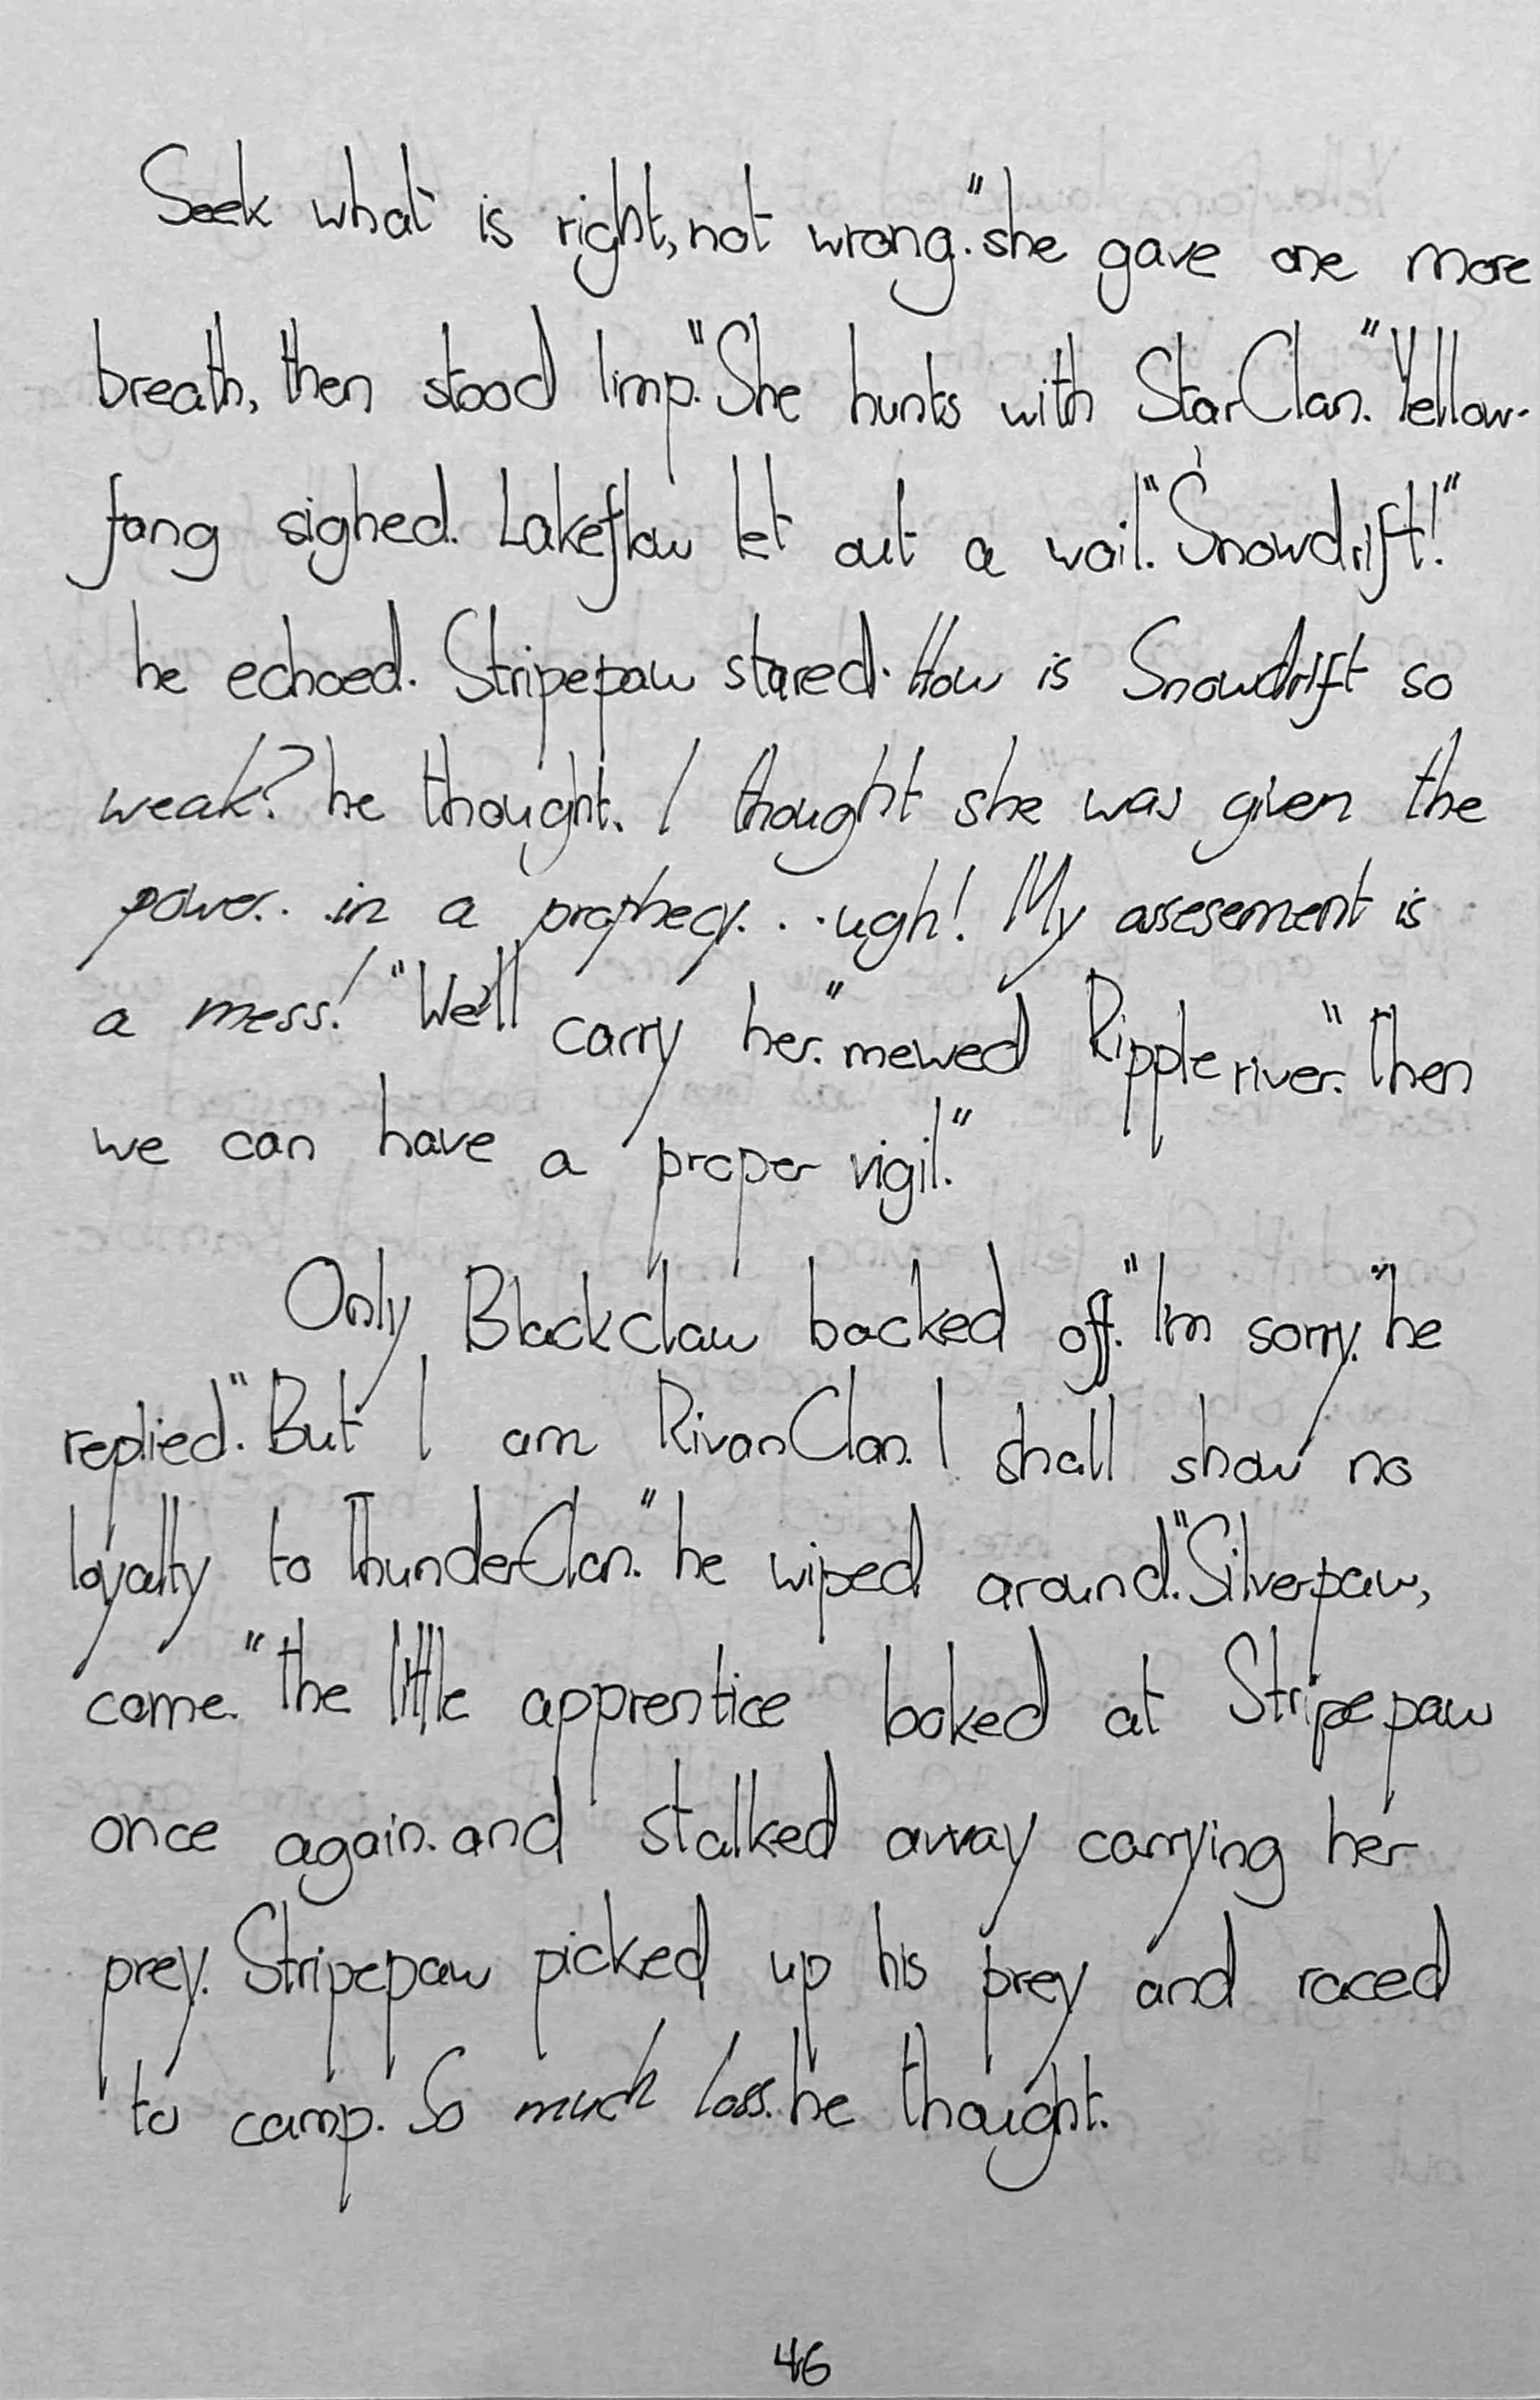 Seek what is right, not wrong." she gave one more
breath, then stood limp. "She hunts with StarClan." Yellow-
fang sighed. Lakeflow let out a wail. "Snowdrift!"
he echoed. Stripepaw stared. How is Snowdrift so
weak? he thought. I thought she was given the
power.. in a prophecy...ugh! My assesement is
a mess! "We'll carry her." mewed Rippleriver. "Then
we can have a proper vigil."
Only Blackclaw backed off. "I'm sorry." he
replied. "But I am RivanClan. I shall show no
loyalty to ThunderClan." he wiped around. "Silverpaw,
come." the little apprentice looked at Stripepaw
once again. and stalked away carrying her
prey. Stripepaw picked up his prey and raced
to camp. So much loss. he thought.
46